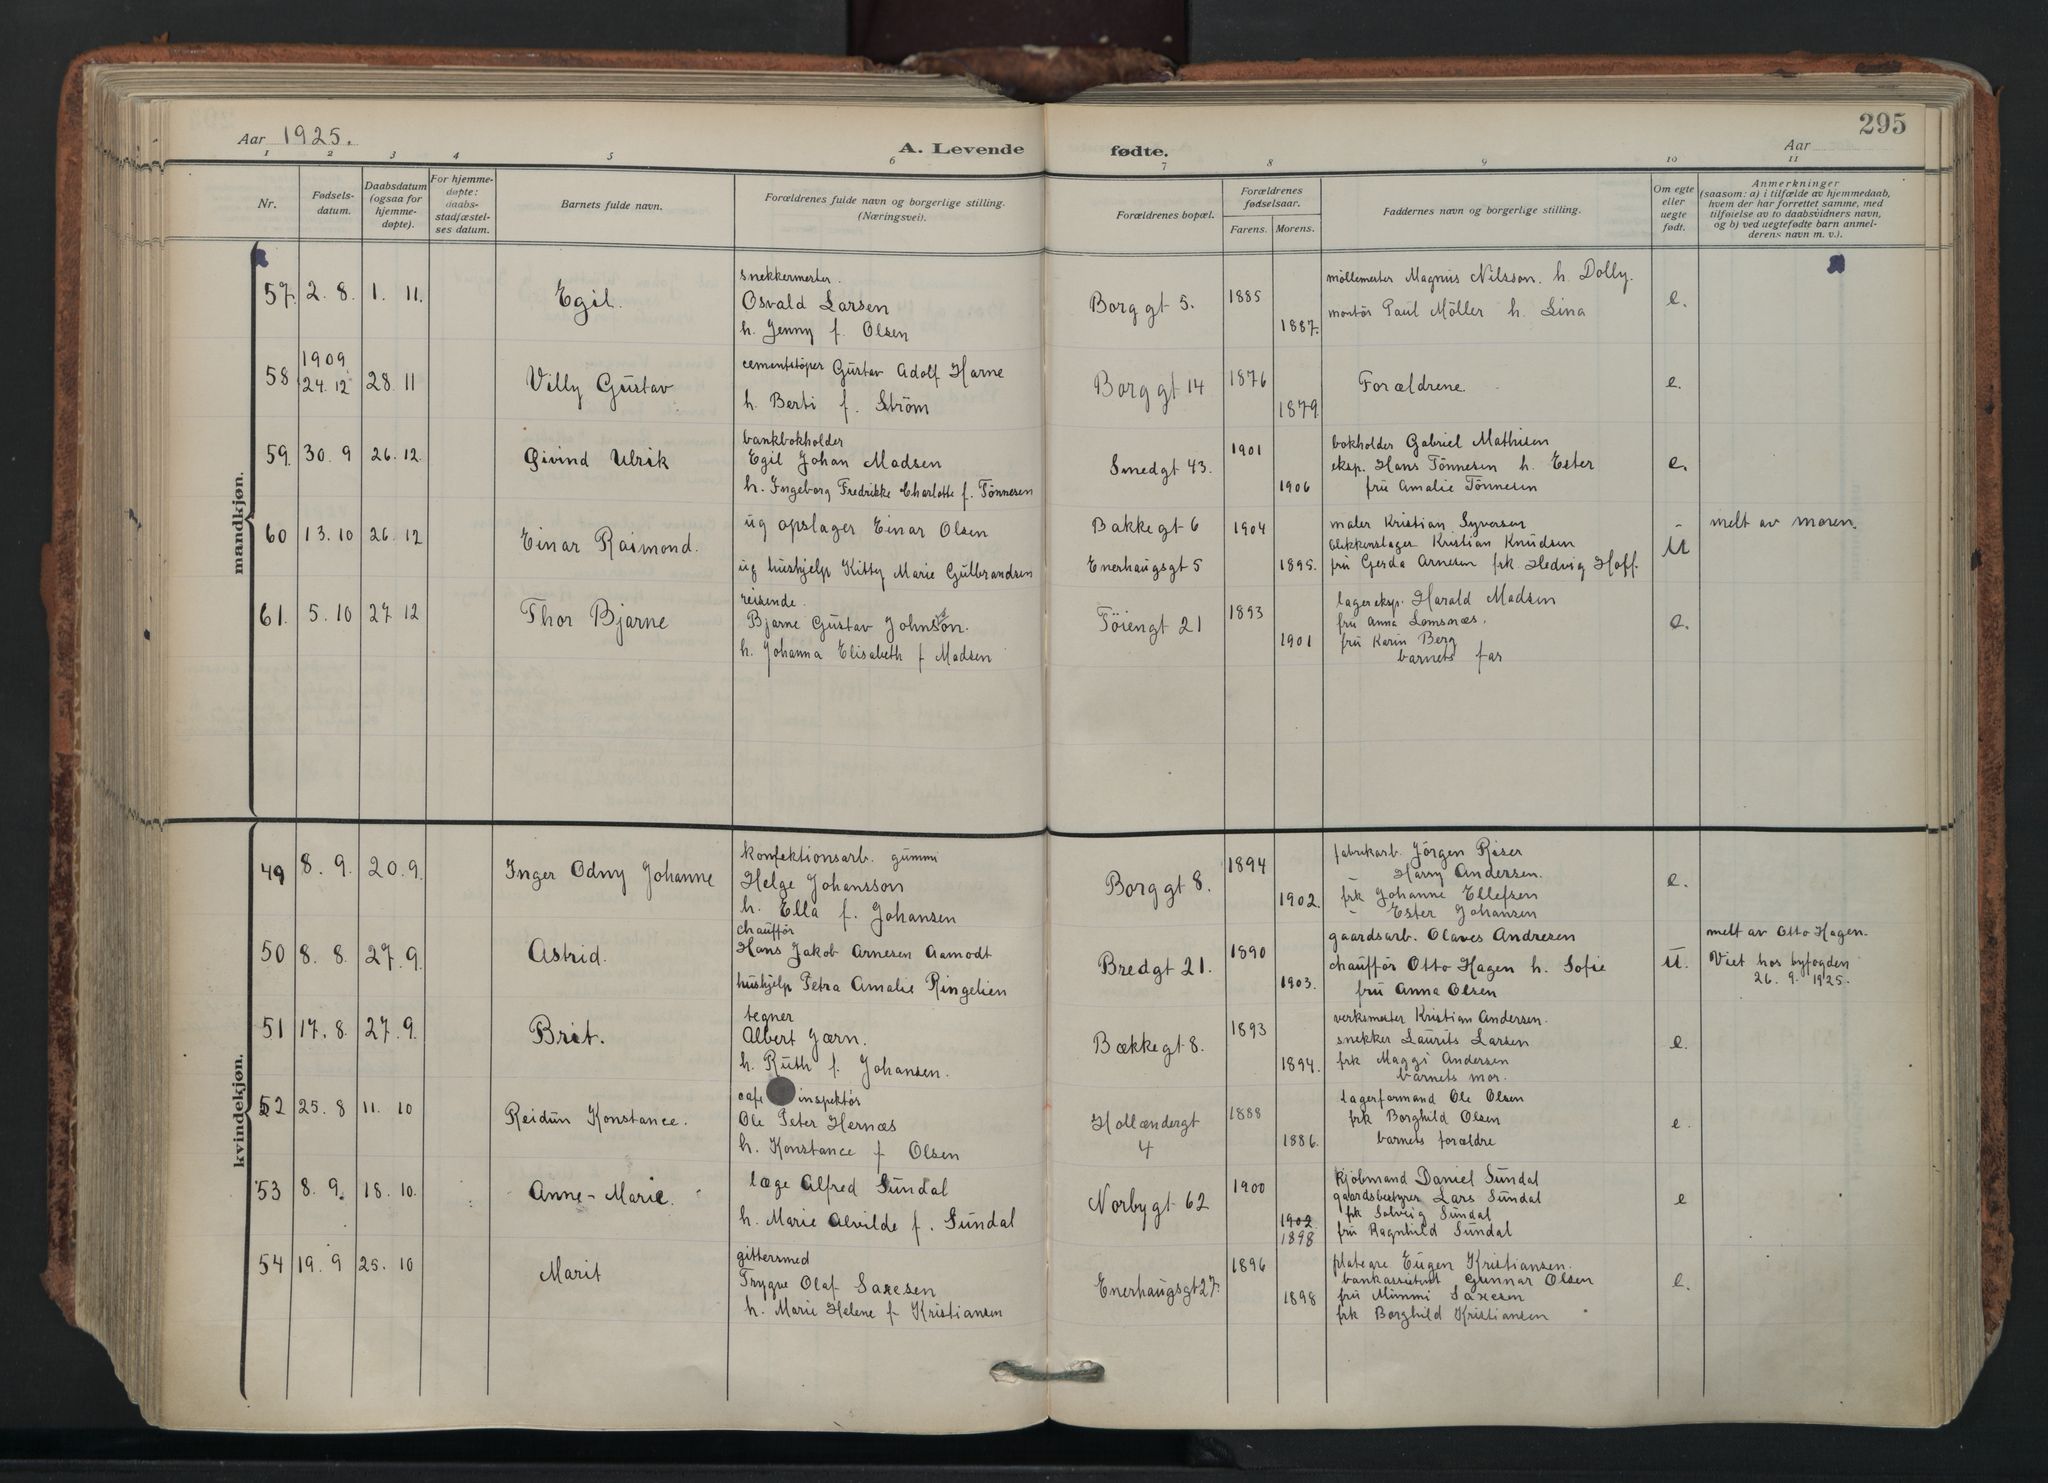 295
Aar 1925.
A. Levende fødte.
Aar
1 2 3 4 5 6 7 8 9 10 11
Nr.
Fødsels-
datum.
Daabsdatum
(ogsaa for
hjemme-
døpte).
For hjemme-
døpte:
daabs-
stadfæstel-
ses datum.
Barnets fulde navn.
Forældrenes fulde navn og borgerlige stilling.
(Næringsvei).
Forældrenes bopæl.
Forældrenes
fødselsaar.
Farens. Morens.
Faddernes navn og borgerlige stilling.
Om egte
eller
uegte
født.
Anmerkninger
(saasom: a) i tilfælde av hjemmedaab,
hvem der har forrettet samme, med
tilføielse av to daabsvidners navn,
og b) ved uegtefødte barn anmel-
derens navn m. v.).
mandkjøn.
57. 2. 8. 1. 11. Egil.
snekkermester.
Osvald Larsen
h. Jenny f. Olsen
Borggt 5. 1885 1887.
möllemester Magnus Nilsson. h. Dolly.
montör Paul Möller h. Lina
e.
58 1909 24. 12 28. 11 Villy Gustav
cementstøper Gustav Adolf Harne
h. Berti f. Ström
Borggt 14 1876 1879.
Forældrene.
e.
59. 30. 9 26. 12. Øivind Ulrik
bankbokholder
Egil Johan Madsen
h. Ingeborg Fredrikke Charlotte f. Tönnesen
Smedgt 43. 1901 1906
bokholder Gabriel Mathisen
eksp. Hans Tönnesen h. Ester
fru Amalie Tönnesen
e.
60 13. 10 26. 12 Einar Raimond.
ug opslager Einar Olsen
ug hushjelp Kitty Marie Gulbrandsen
Bakkegt 6
Enerhaugsgt 5
1904 1895.
maler Kristian Syversen
blikkenslager Kristian Knudsen
fru Gerda Arnesen frk Hedvig Hoff.
U
melt av moren.
61. 5. 10 27. 12 Thor Bjarne
reisende.
Bjarne Gustav Johnson.
h. Johanna Elisabeth f Madsen
Töiengt 21 1893 1901
lagereksp. Harald Madsen
fru Anna Lomsnæs.
fru Karin Berg
barnets far
e.
kvindekjøn.
49 8. 9. 20. 9. Inger Odny Johanne
konfektionsarb. gummi
Helge Johansson
h. Ella f. Johansen
Borggt 8. 1894 1902.
fabrikarb. Jörgen Riser
– Harry Andersen.
frk Johanne Ellefsen
– Ester Johansen
e.
50 8. 8. 27. 9. Astrid.
chauffør
Hans Jakob Arnesen Aamodt
hushjelp Petra Amalie Ringelien
Bredgt 21. 1890 1903.
gaardsarb. Olaves Andresen
chaufför Otto Hagen h. Sofie
fru Anna Olsen
U.
melt av Otto Hagen.
Viet hos byfogden
26. 9. 1925.
51 17. 8. 27. 9. Brit.
tegner
Albert Jærn.
h. Ruth f. Johansen.
Bækkegt 8. 1893 1894.
verksmester Kristian Andersen.
snekker Laurits Larsen
frk Maggi Andersen
barnets mor.
e.
52 25. 8 11. 10 Reidun Konstance.
cafe inspektör
Ole Peter Hernæs
h. Konstance f Olsen
Hollændergt
4
1888 1886.
lagerformand Ole Olsen
frk Borghild Olsen
barnets forældre
e.
53 8. 9. 18. 10. Anne-Marie.
læge Alfred Sundal
h. Marie Alvilde f. Sundal
Norbygt 62 1900 1902 1898
kjöbmand Daniel Sundal
gaardsbestyrer Lars Sundal
frk Solveig Sundal
fru Ragnhild Sundal
e
54 19. 9 25. 10 Marit
gittersmed
Trygve Olaf Saxesen
h. Marie Helene f Kristiansen
Enerhaugsgt 27. 1896 1898
Eugen Kristiansen.
bankassistent Gunnar Olsen
fru Mimmi Saxesen
frk Borghild Kristiansen
e.